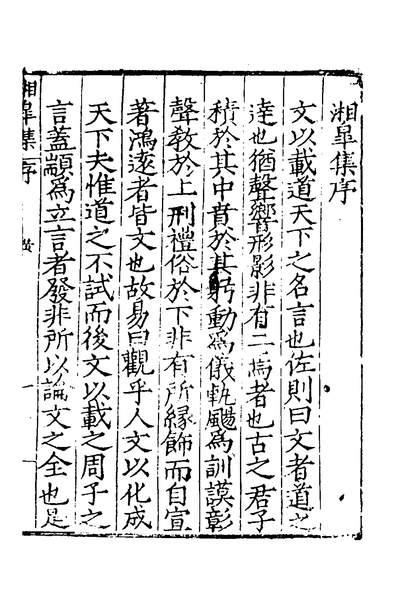 湘皐集序
文以載道天下之名言也佐則曰文者道之
達也猶聲響形影非有二焉者也古之君子
積於其中音於其躬動為儀軌颺為訓謨彰
聲教於上刑禮俗於下非有所緣飾而自宣
著鴻逺者皆文也故易曰觀乎人文以化成
天下夫惟道之不試而後文以載之周子之
言蓋顓為立言者發非所以論文之全也是
湘皐集序
一